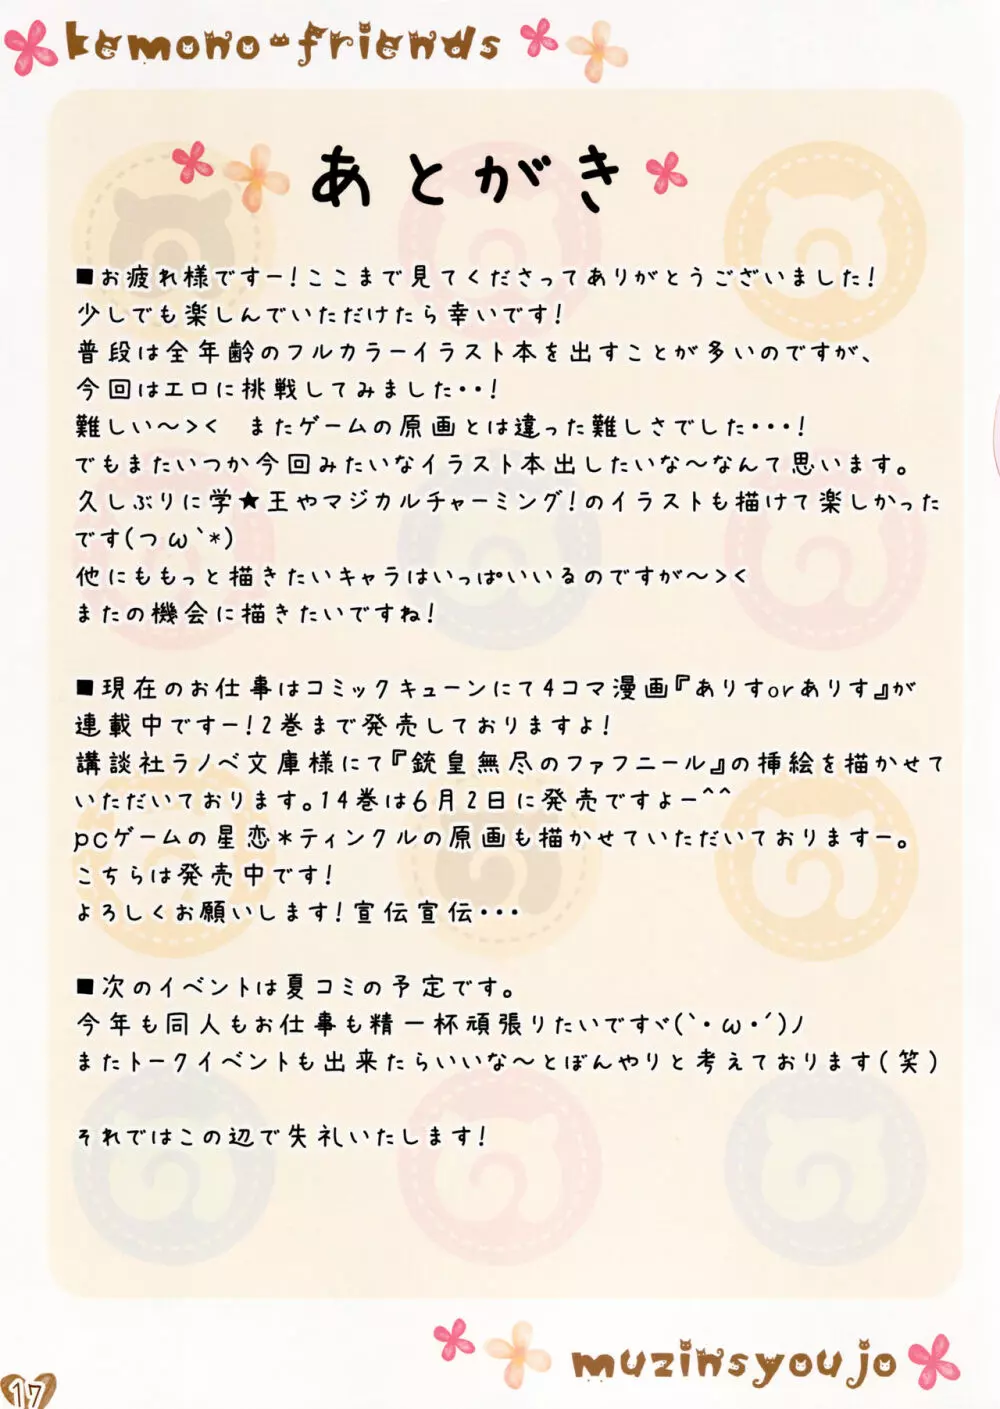 kemono-friends
あとがき
■お疲れ様ですー!ここまで見てくださってありがとうございました!
少しでも楽しんでいただけたら幸いです!
普段は全年齢のフルカラーイラスト本を出すことが多いのですが、
今回はエロに挑戦してみました・・!
難しい〜><　またゲームの原画とは違った難しさでした・・・!
でもまたいつか今回みたいなイラスト本出したいな〜なんて思います。
久しぶりに学★王やマジカルチャーミング!のイラストも描けて楽しかった
です(つω`*)
他にももっと描きたいキャラはいっぱいいるのですが〜><
またの機会に描きたいですね!
■現在のお仕事はコミックキューンにて4コマ漫画『ありすorありす』が
連載中ですー!2巻まで発売しておりますよ!
講談社ラノベ文庫様にて『銃皇無尽のファフニール』の挿絵を描かせて
いただいております。14巻は6月2日に発売ですよー^^
pcゲームの星恋*ティンクルの原画も描かせていただいておりますー。
こちらは発売中です!
よろしくお願いします!宣伝宣伝・・・
■次のイベントは夏コミの予定です。
今年も同人もお仕事も精一杯頑張りたいですヾ(`・ω・´)ノ
またトークイベントも出来たらいいな〜とぼんやりと考えております(笑)
それではこの辺で失礼いたします!
muzinsyoujo
17